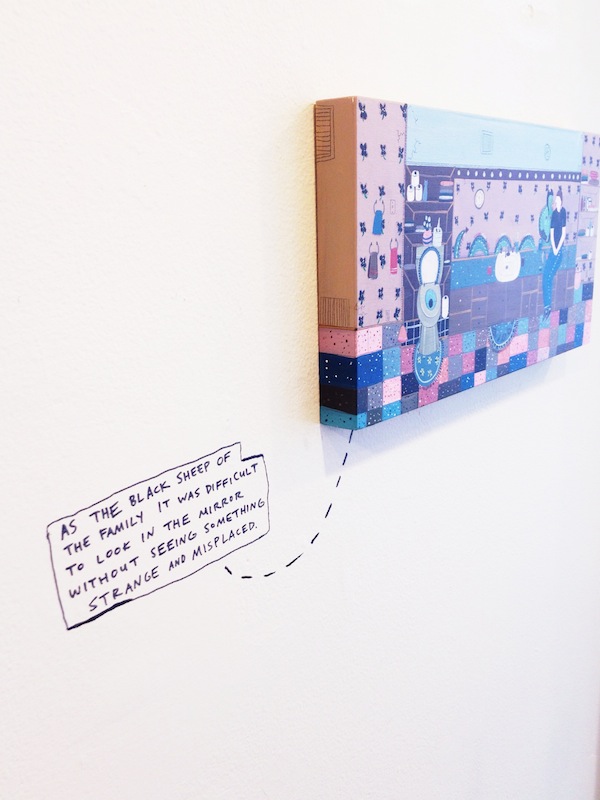 AS THE BLACK SHEEP OF
THE FAMILY IT WAS DIFFICULT
TO LOOK IN THE MIRROR
WITHOUT SEEING SOMETHING
STRANGE AND MISPLACED.